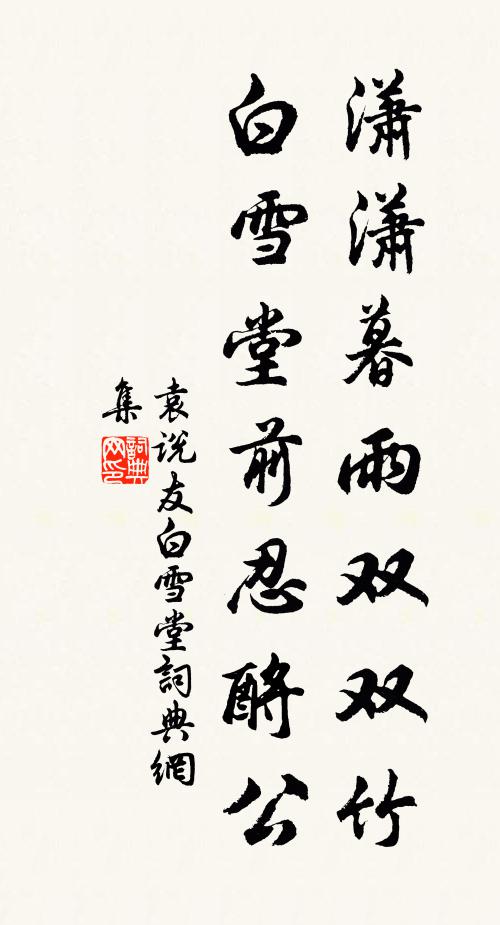 潇潇暮雨双双竹
白雪堂前忍酹公
袁说友白雪堂詞典網
集
詞典
网印